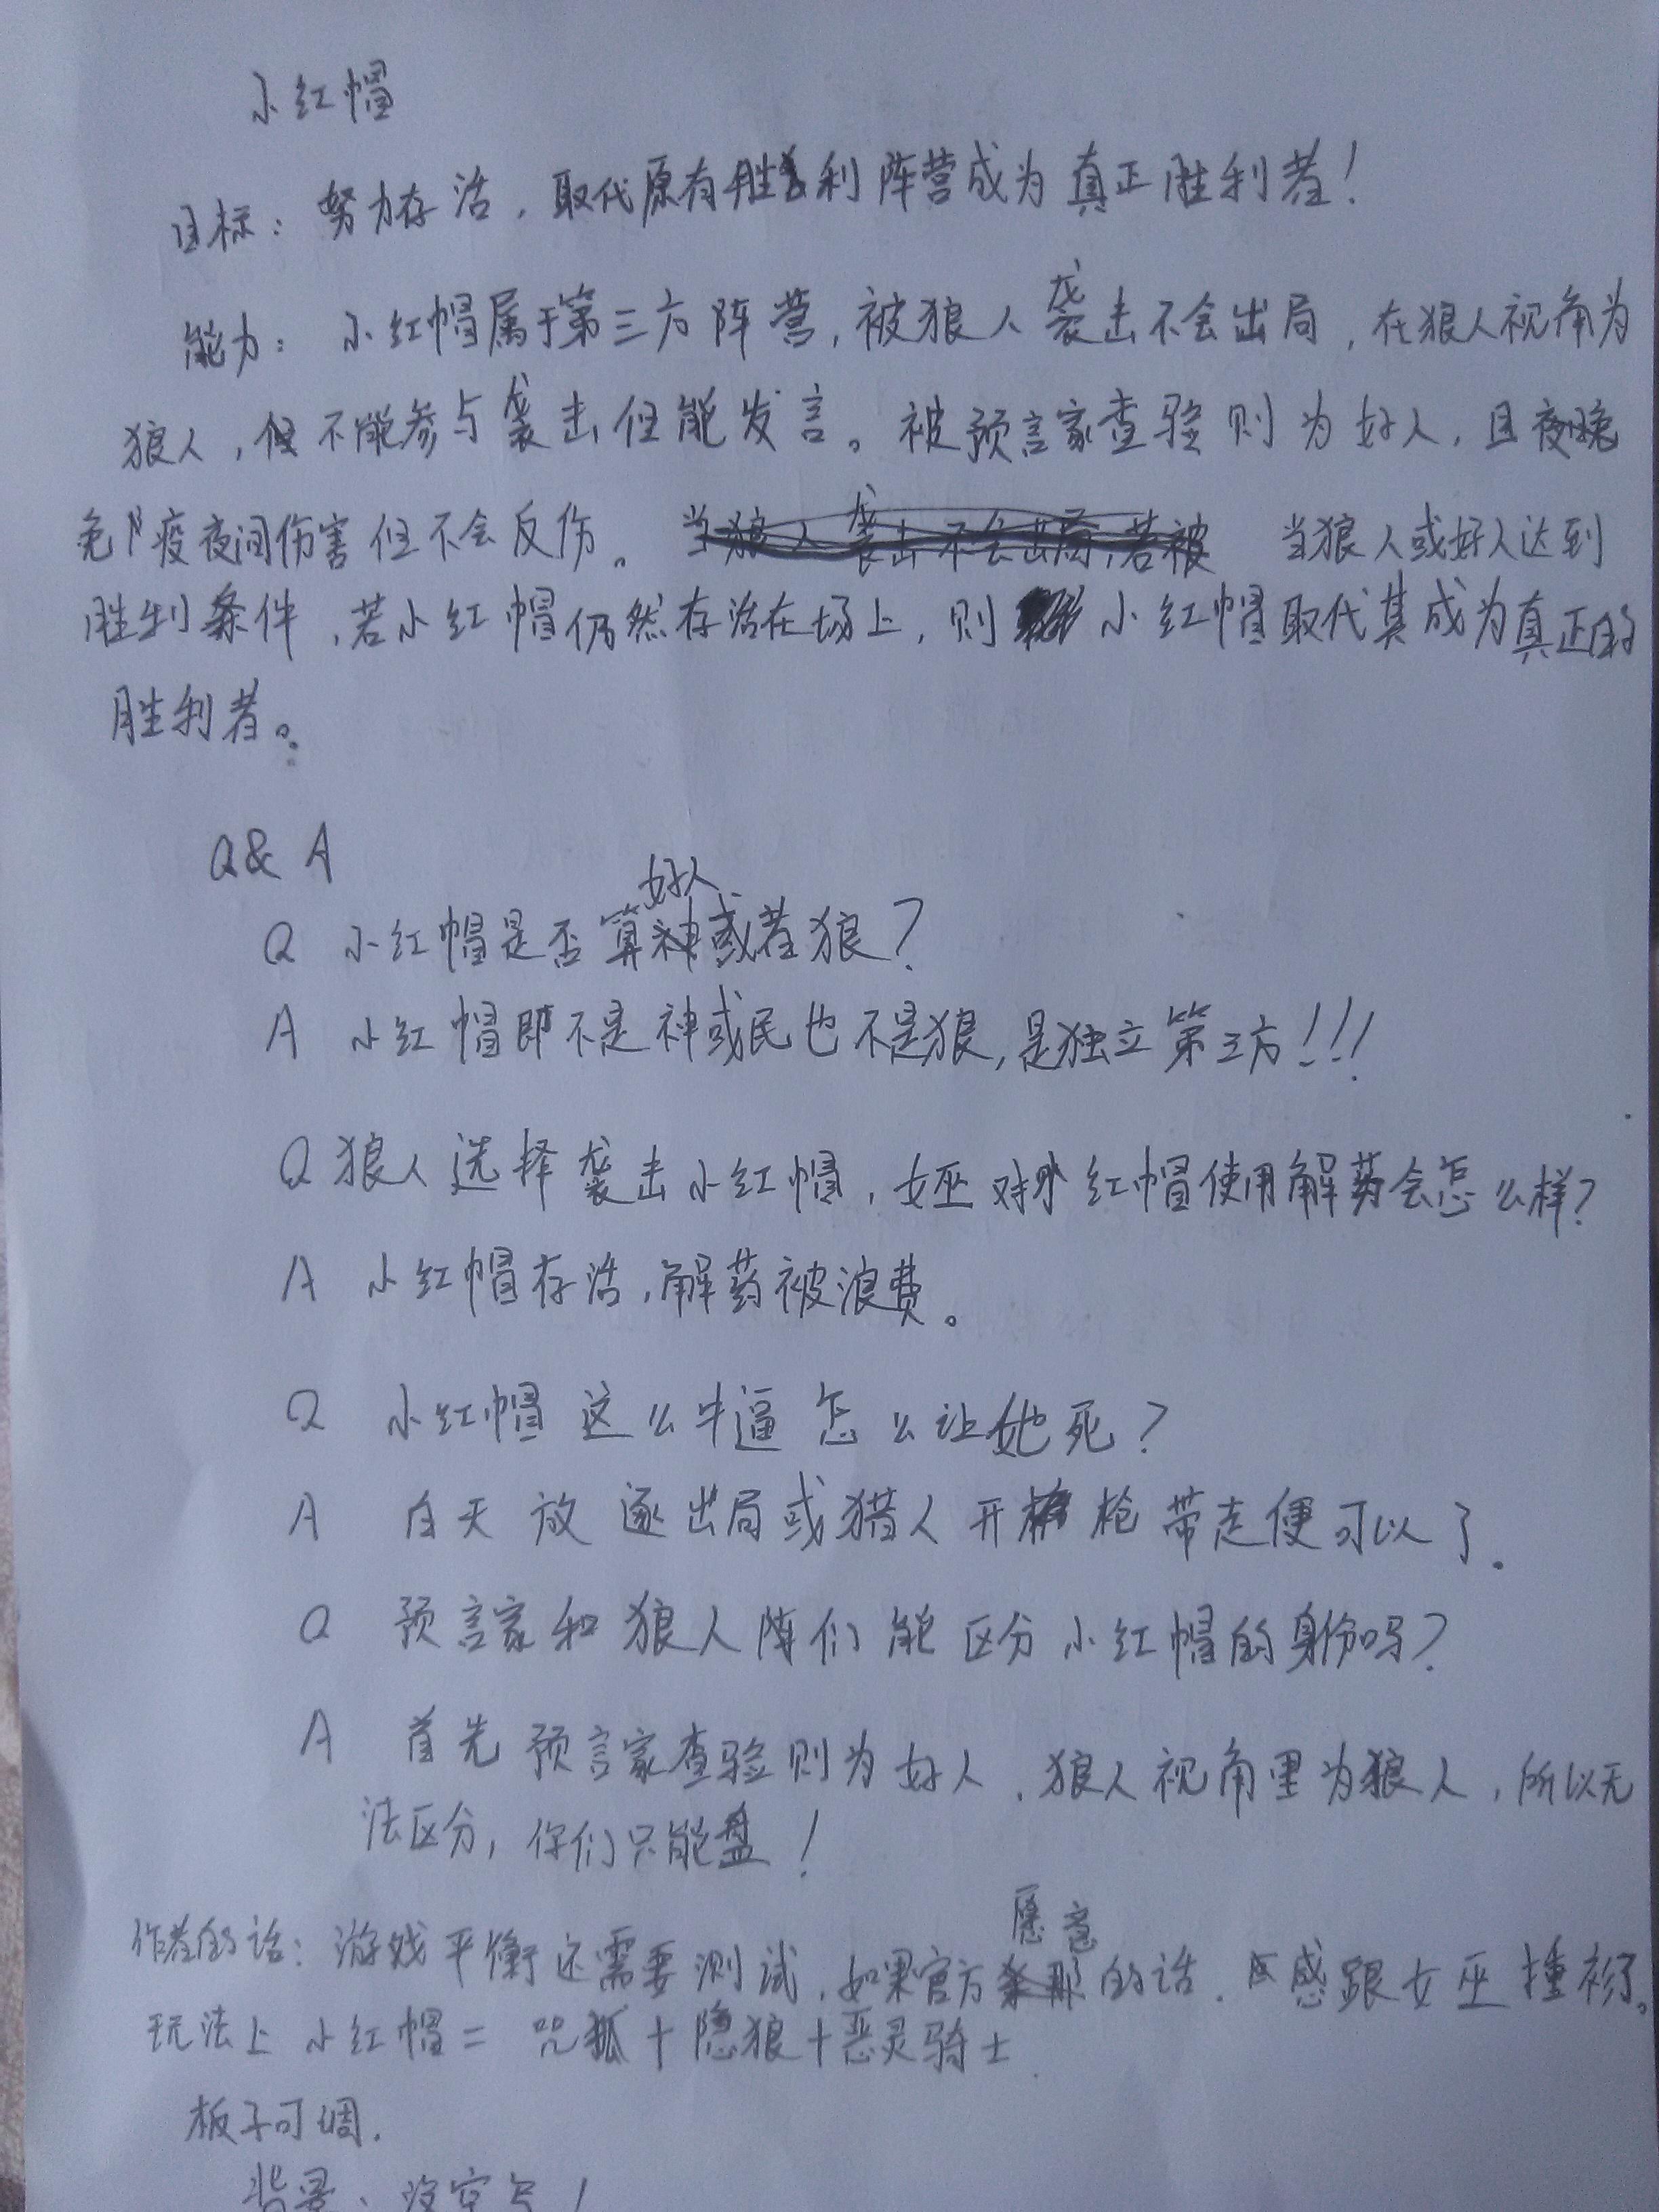 小红帽
目标：努力存活，取代原有胜利阵营成为真正胜利者！
能力：小红帽属于第三方阵营，被狼人袭击不会出局，在狼人视角为
狼人，但不能参与袭击但能发言。被预言家查验则为好人，且夜晚
免疫夜间伤害但不会反伤。当狼人袭击不会出局，若被 当狼人或好人达到
胜利条件，若小红帽仍然存活在场上，则小红帽取代其成为真正的
胜利者。
Q&A
好人
Q 小红帽是否算神或者狼？
A 小红帽即不是神或民也不是狼，是独立第三方！！！
Q 狼人选择袭击小红帽，女巫对小红帽使用解药会怎么样？
A 小红帽存活，解药被浪费。
Q 小红帽这么牛逼怎么让她死？
A 白天放逐出局或猎人开枪带走便可以了。
Q 预言家和狼人阵们能区分小红帽的身份吗？
A 首先预言家查验则为好人，狼人视角里为狼人，所以无
法区分，你们只能盘！
愿意
作者的话：游戏平衡还需要测试，如果官方的话，感跟女巫撞衫了。
玩法上小红帽=咒狐+隐狼+恶灵骑士
板子可调.
背景：没空写！